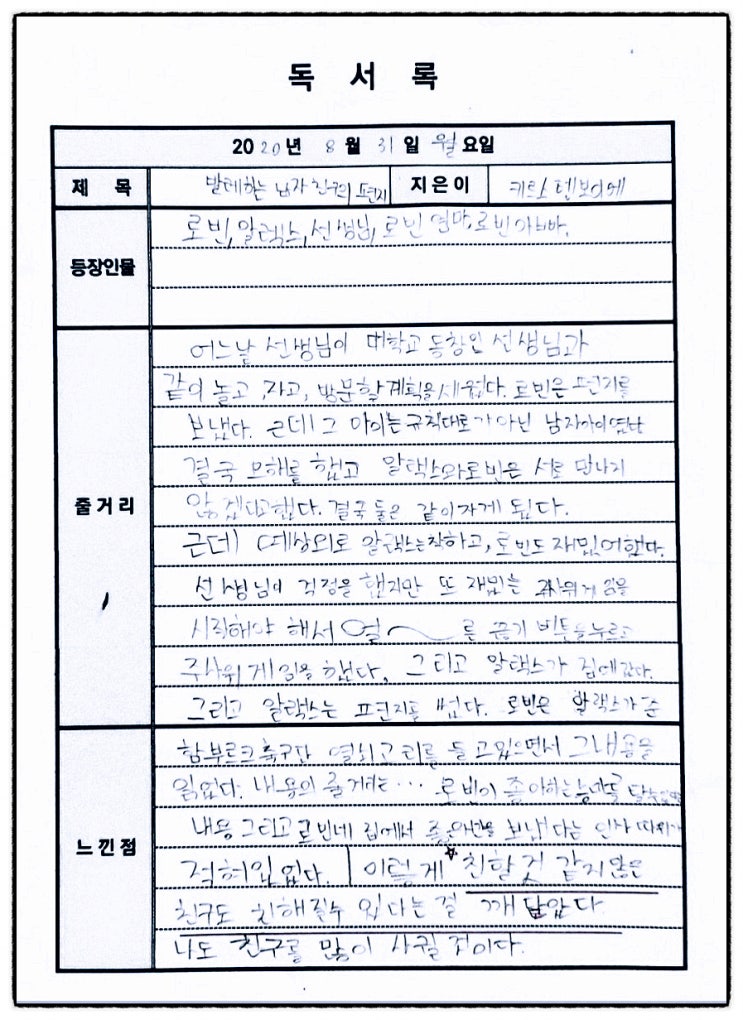 독 서 록
2020년 8월 31일 월요일
제 목 발레하는 남자친구의 편지 지은이 키르스텐보이에
등장인물 로빈, 알렉스, 선생님, 로빈 엄마, 로빈아빠.
어느날 선생님이 대학교 동창인 선생님과
같이 놀고, 자고, 방문할 계획을 세웠다. 로빈은 편지를
보냈다. 근데 그 아이는 규칙대로가 아닌 남자아이였
결국 오해를 했고 알랙스와 로빈은 서로 만나지
않겠다고했다. 결국 둘은 같이 자게 됬다.
줄거리
근데 예상외로 알랙스는 착하고, 로빈도 재밌어했다.
선생님이 걱정을 했지만 또 재밌는 주사위게임을
시작해야 해서 열~른 끊기 버튼을누르고
주사위게임을 했다. 그리고 알랙스가 집에갔다.
그리고 알랙스는 편지를 썼다. 로빈은 알랙스가 준
함부르크축구단 열쇠고리를 들고있으면서 그내용을
읽었다. 내용의 줄거리는… 로빈이 좋아하는
내용 그리고 로빈네 집에서 좋은시간을 보냈다는 인사 따위가
느낀점
적혀있었다. 이렇게 친할 것 같지않은
친구도 친해질수 있다는 걸 깨달았다.
나도 친구를 많이 사귈 것이다.